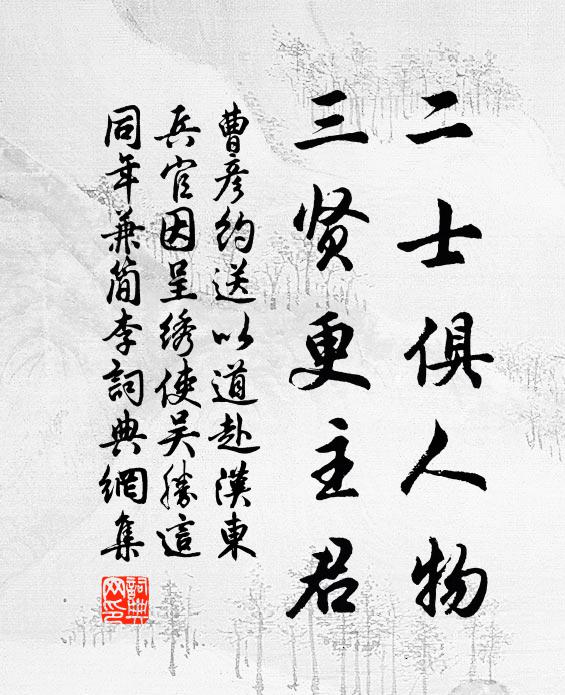 二士俱人物
三贤更主君
曹彦约送以道赴汉東
兵官因呈绣使吴勝這
同年兼简李詞典網集
詞典
网印